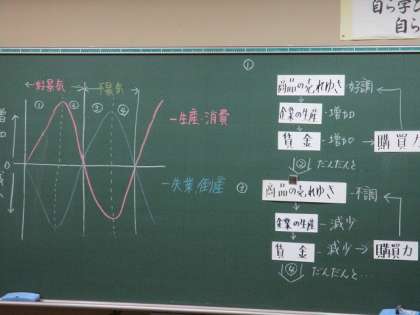 自ら学び
自ら
←好景気→←不景気→
① ② ③ ④
増加
0
減少
―生産・消費
―失業・倒産
①
商品の売れゆき 好調
↓
企業の生産-増加
↓
賃金-増加→購買力
↓
② だんだんと…
商品の売れゆき-不調
↓
企業の生産-減少
↓
賃金-減少→購買力
④ だんだんと…